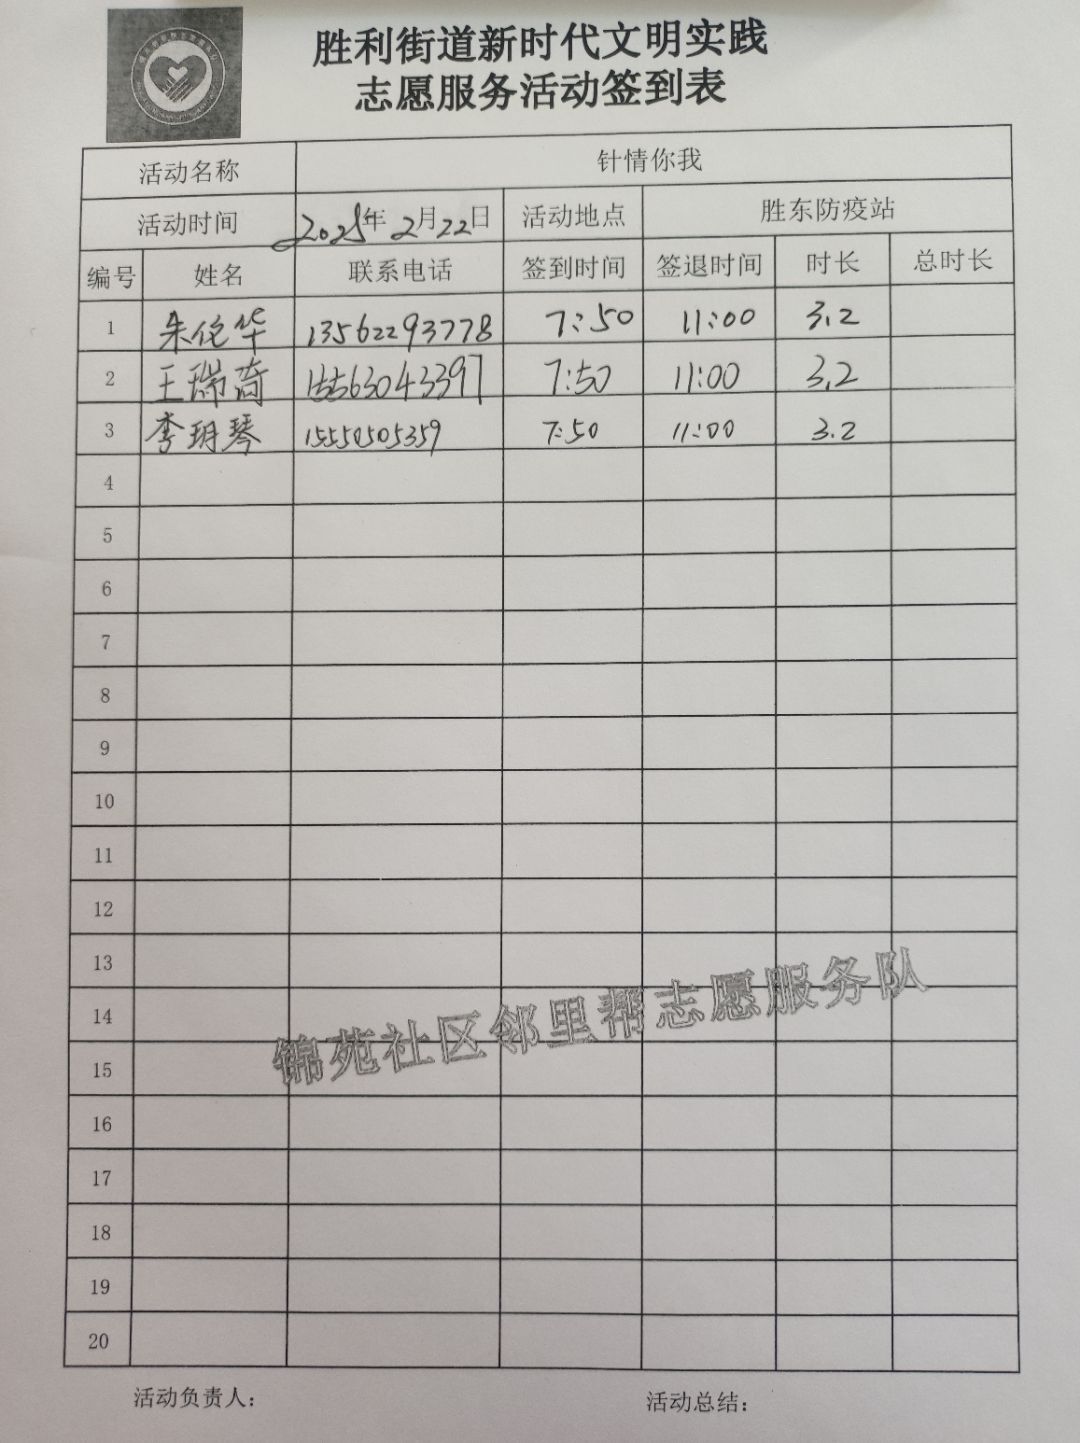 胜利街道新时代文明实践
志愿服务活动签到表
活动名称 针情你我
活动时间 2025年2月22日 活动地点 胜东防疫站
编号 姓名 联系电话 签到时间 签退时间 时长 总时长
1 朱佗华 13562293778 7:50 11:00 3.2
2 王瑞奇 15563043397 7:50 11:00 3.2
3 李玥琴 15550505359 7:50 11:00 3.2
4
5
6
7
8
9
10
11
12
13
14
锦苑社区邻里帮志愿服务队
15
16
17
18
19
20
活动负责人: 活动总结: